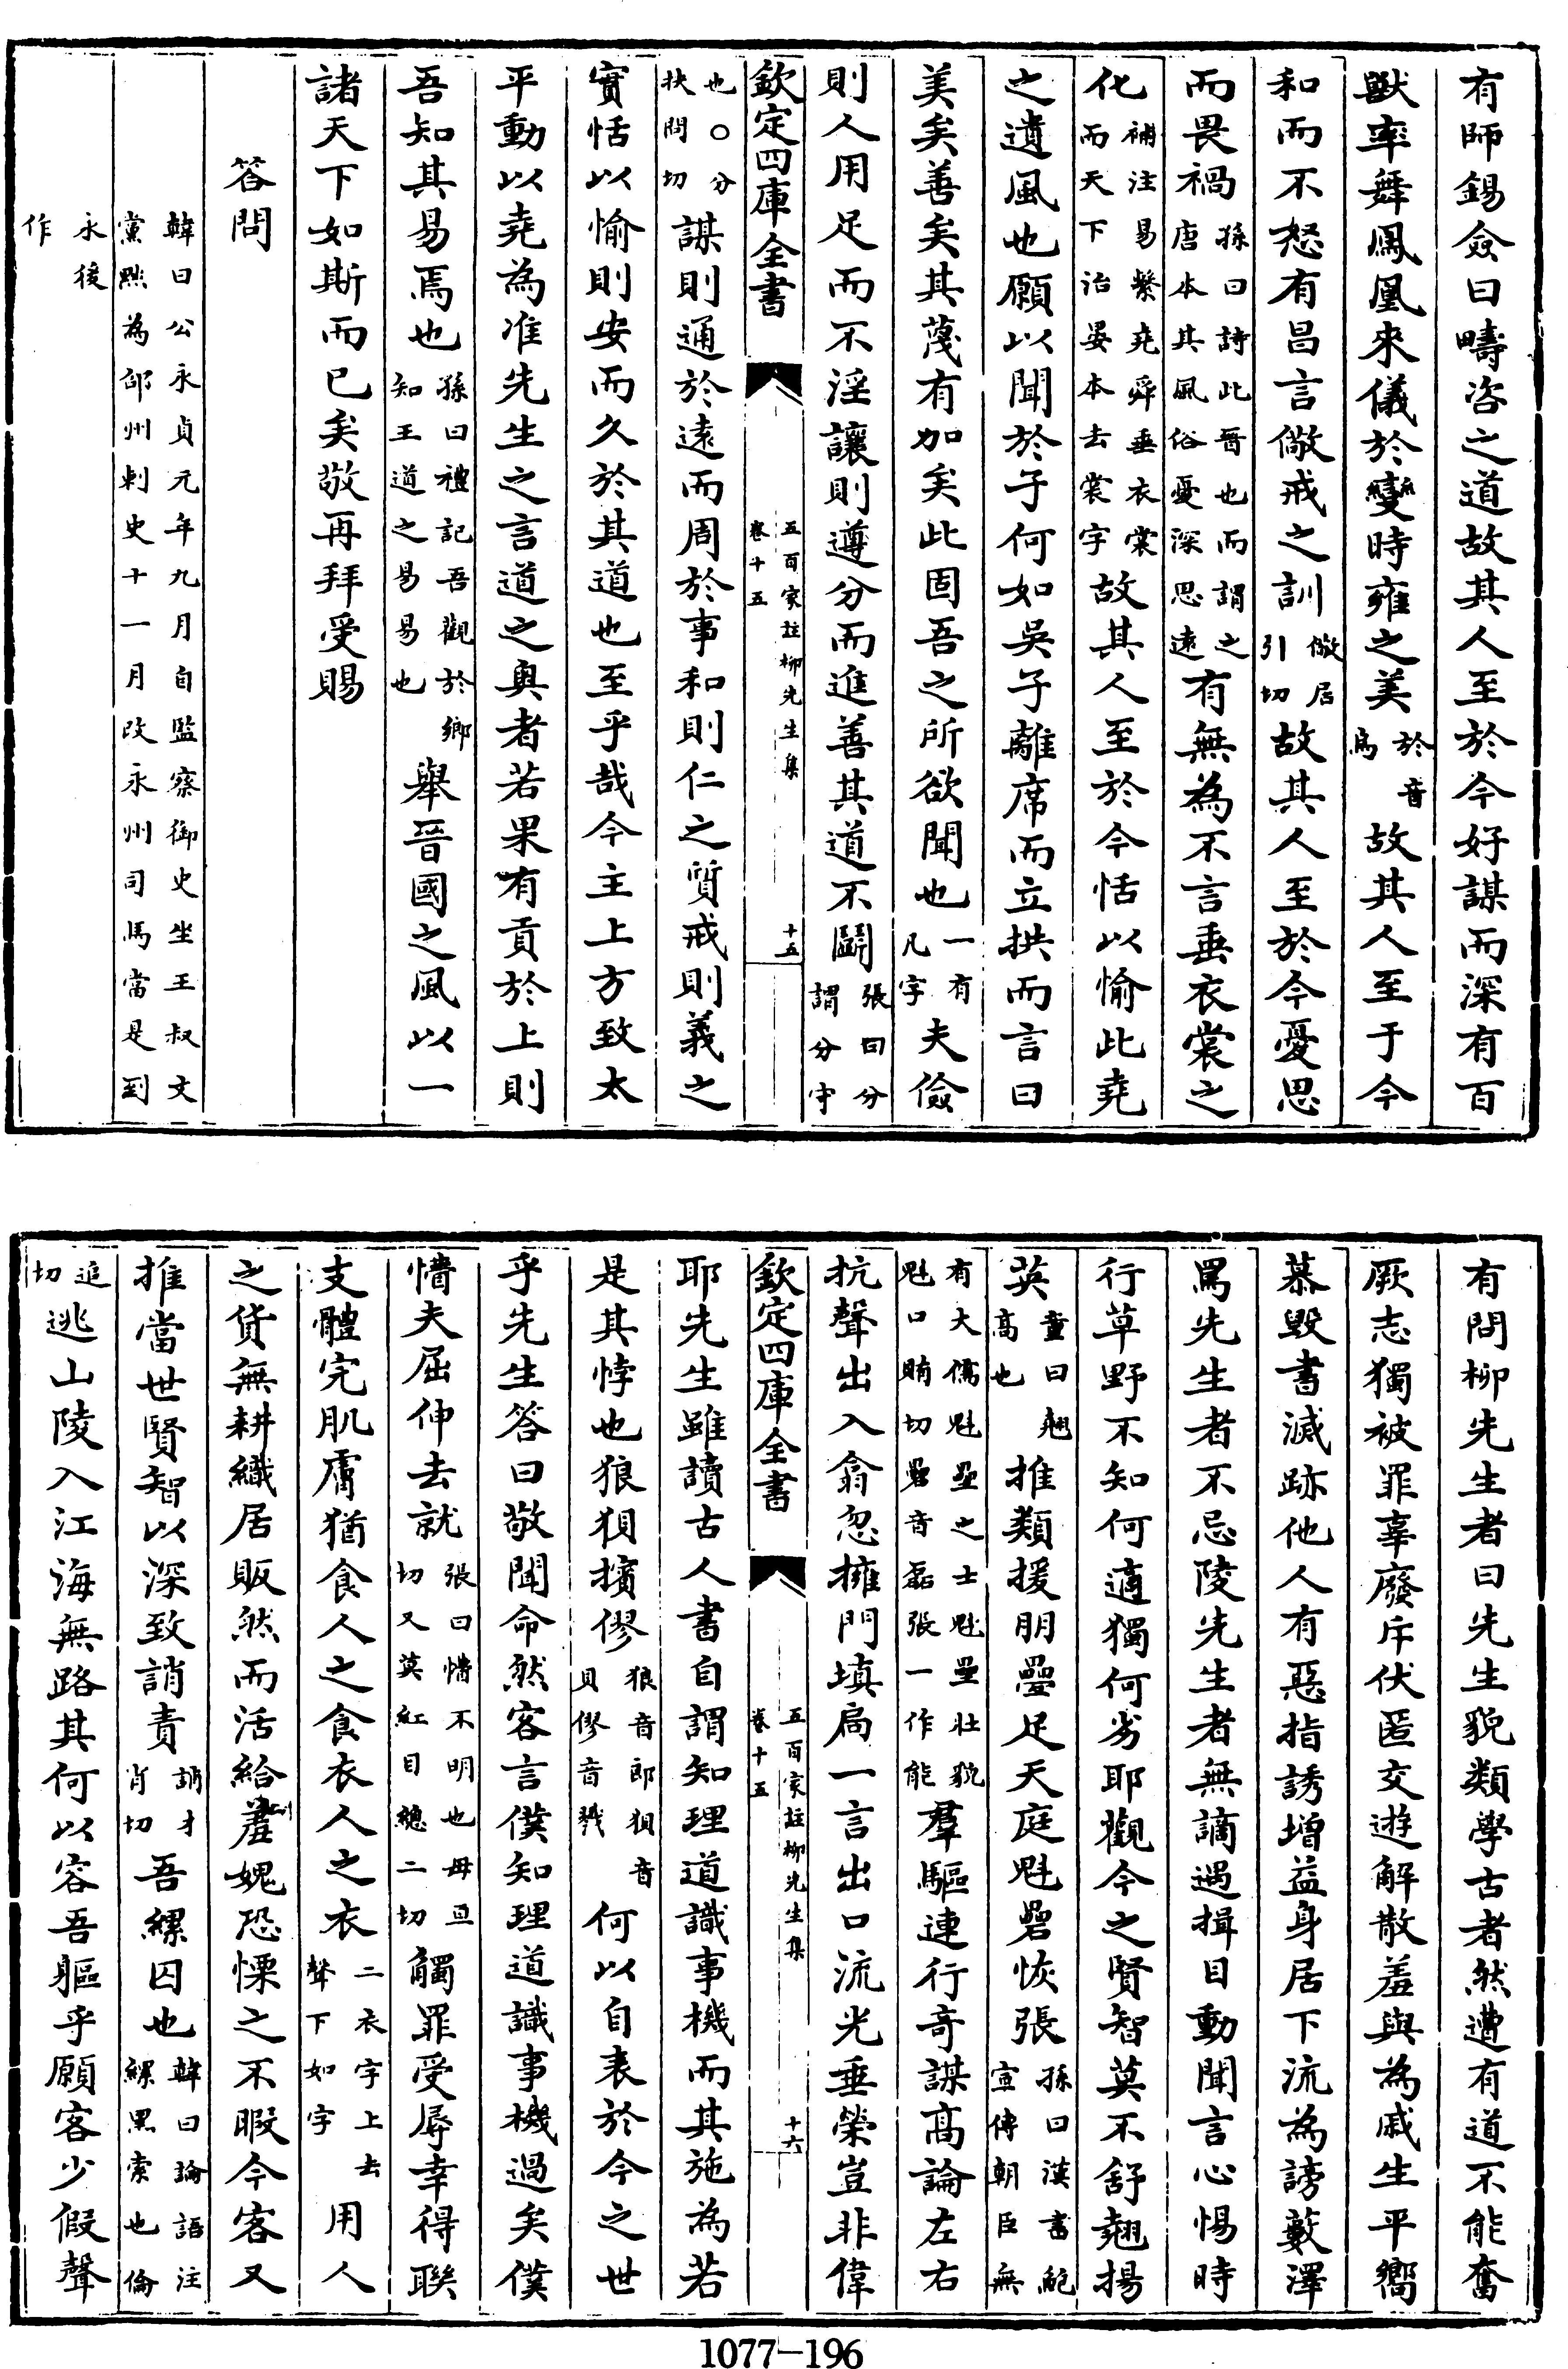 有師錫僉曰疇咨之道故其人至於今好謀而深有百
獸率舞鳳凰來儀於變時雍之美於音烏故其人至于今
和而不怒有昌言儆戒之訓儆居引切故其人至於今憂思
而畏禍孫曰詩此晉也而謂之唐本其風俗憂深思遠有無為不言垂衣裳之
化補注易繫堯舜垂衣裳而天下治晏本去裳字故其人至於今恬以愉此堯
之遺風也願以聞於子何如吳子離席而立拱而言曰
美矣善矣其蔑有加矣此固吾之所欲聞也一有凡字夫儉
則人用足而不淫讓則遵分而進善其道不鬭張曰分謂分守
欽定四庫全書 五百家註柳先生集 卷十五 十五
也○分扶問切謀則通於遠而周於事和則仁之質戒則義之
實恬以愉則安而久於其道也至乎哉今主上方致太
平動以堯為准先生之言道之奧者若果有貢於上則
吾知其易焉也孫曰禮記吾觀於鄉知王道之易易也舉晉國之風以一
諸天下如斯而已矣敬再拜受賜
答問
韓曰公永貞元年九月自監察御史坐王叔文黨黜為邵州刺史十一月改永州司馬當是到
永後作
有問柳先生者曰先生貌類學古者然遭有道不能奮
厥志獨被罪辜廢斥伏匿交遊解散羞與為戚生平嚮
慕毀書滅跡他人有惡指誘增益身居下流為謗藪澤
罵先生者不忌陵先生者無謫遇揖目動聞言心惕時
行草野不知何適獨何劣耶觀今之賢智莫不舒翹揚
英童曰翹高也推類援朋疊足天庭魁礨恢張孫曰漢書鮑宣傳朝臣無
有大儒魁壘之士魁壘壯貌魁口賄切礨音磊張一作能羣驅連行奇謀高論左右
抗聲出入翕忽擁門填扃一言出口流光垂榮豈非偉
欽定四庫全書 五百家註柳先生集 卷十五 十六
耶先生雖讀古人書自謂知理道識事機而其施為若
是其悖也狼狽擯僇狼音郎狽音貝僇音戮何以自表於今之世
乎先生答曰敬聞命然客言僕知理道識事機過矣僕
懵夫屈伸去就張曰懵不明也毋亘切又莫紅目總二切觸罪受辱幸得聯
支體完肌膚猶食人之食衣人之衣二衣字上去聲下如字用人
之貨無耕織居販然而活給羞媿恐慄之不暇今客又
推當世賢智以深致誚責誚才肖切吾縲囚也韓曰論語注縲黑索也倫
追切逃山陵入江海無路其何以容吾軀乎願客少假聲
1077-196